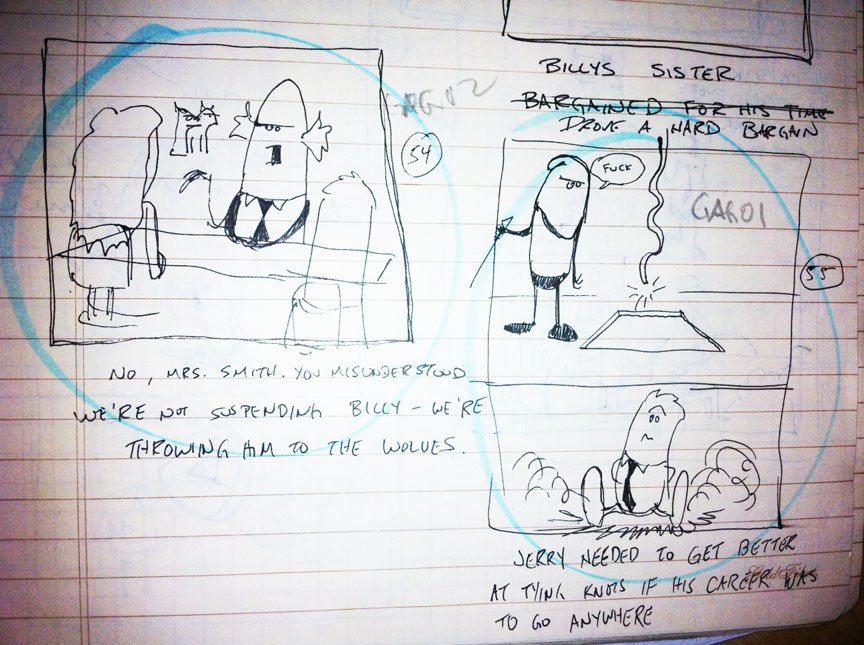 54
NO, MRS. SMITH. YOU MISUNDERSTOOD
WE'RE NOT SUSPENDING BILLY - WE'RE
THROWING HIM TO THE WOLVES.
BILLYS SISTER
BARGAINED FOR HIS TIME
DROVE A HARD BARGAIN
FUCK
GAR01
55
JERRY NEEDED TO GET BETTER
AT TYING KNOTS IF HIS CAREER WAS
TO GO ANYWHERE